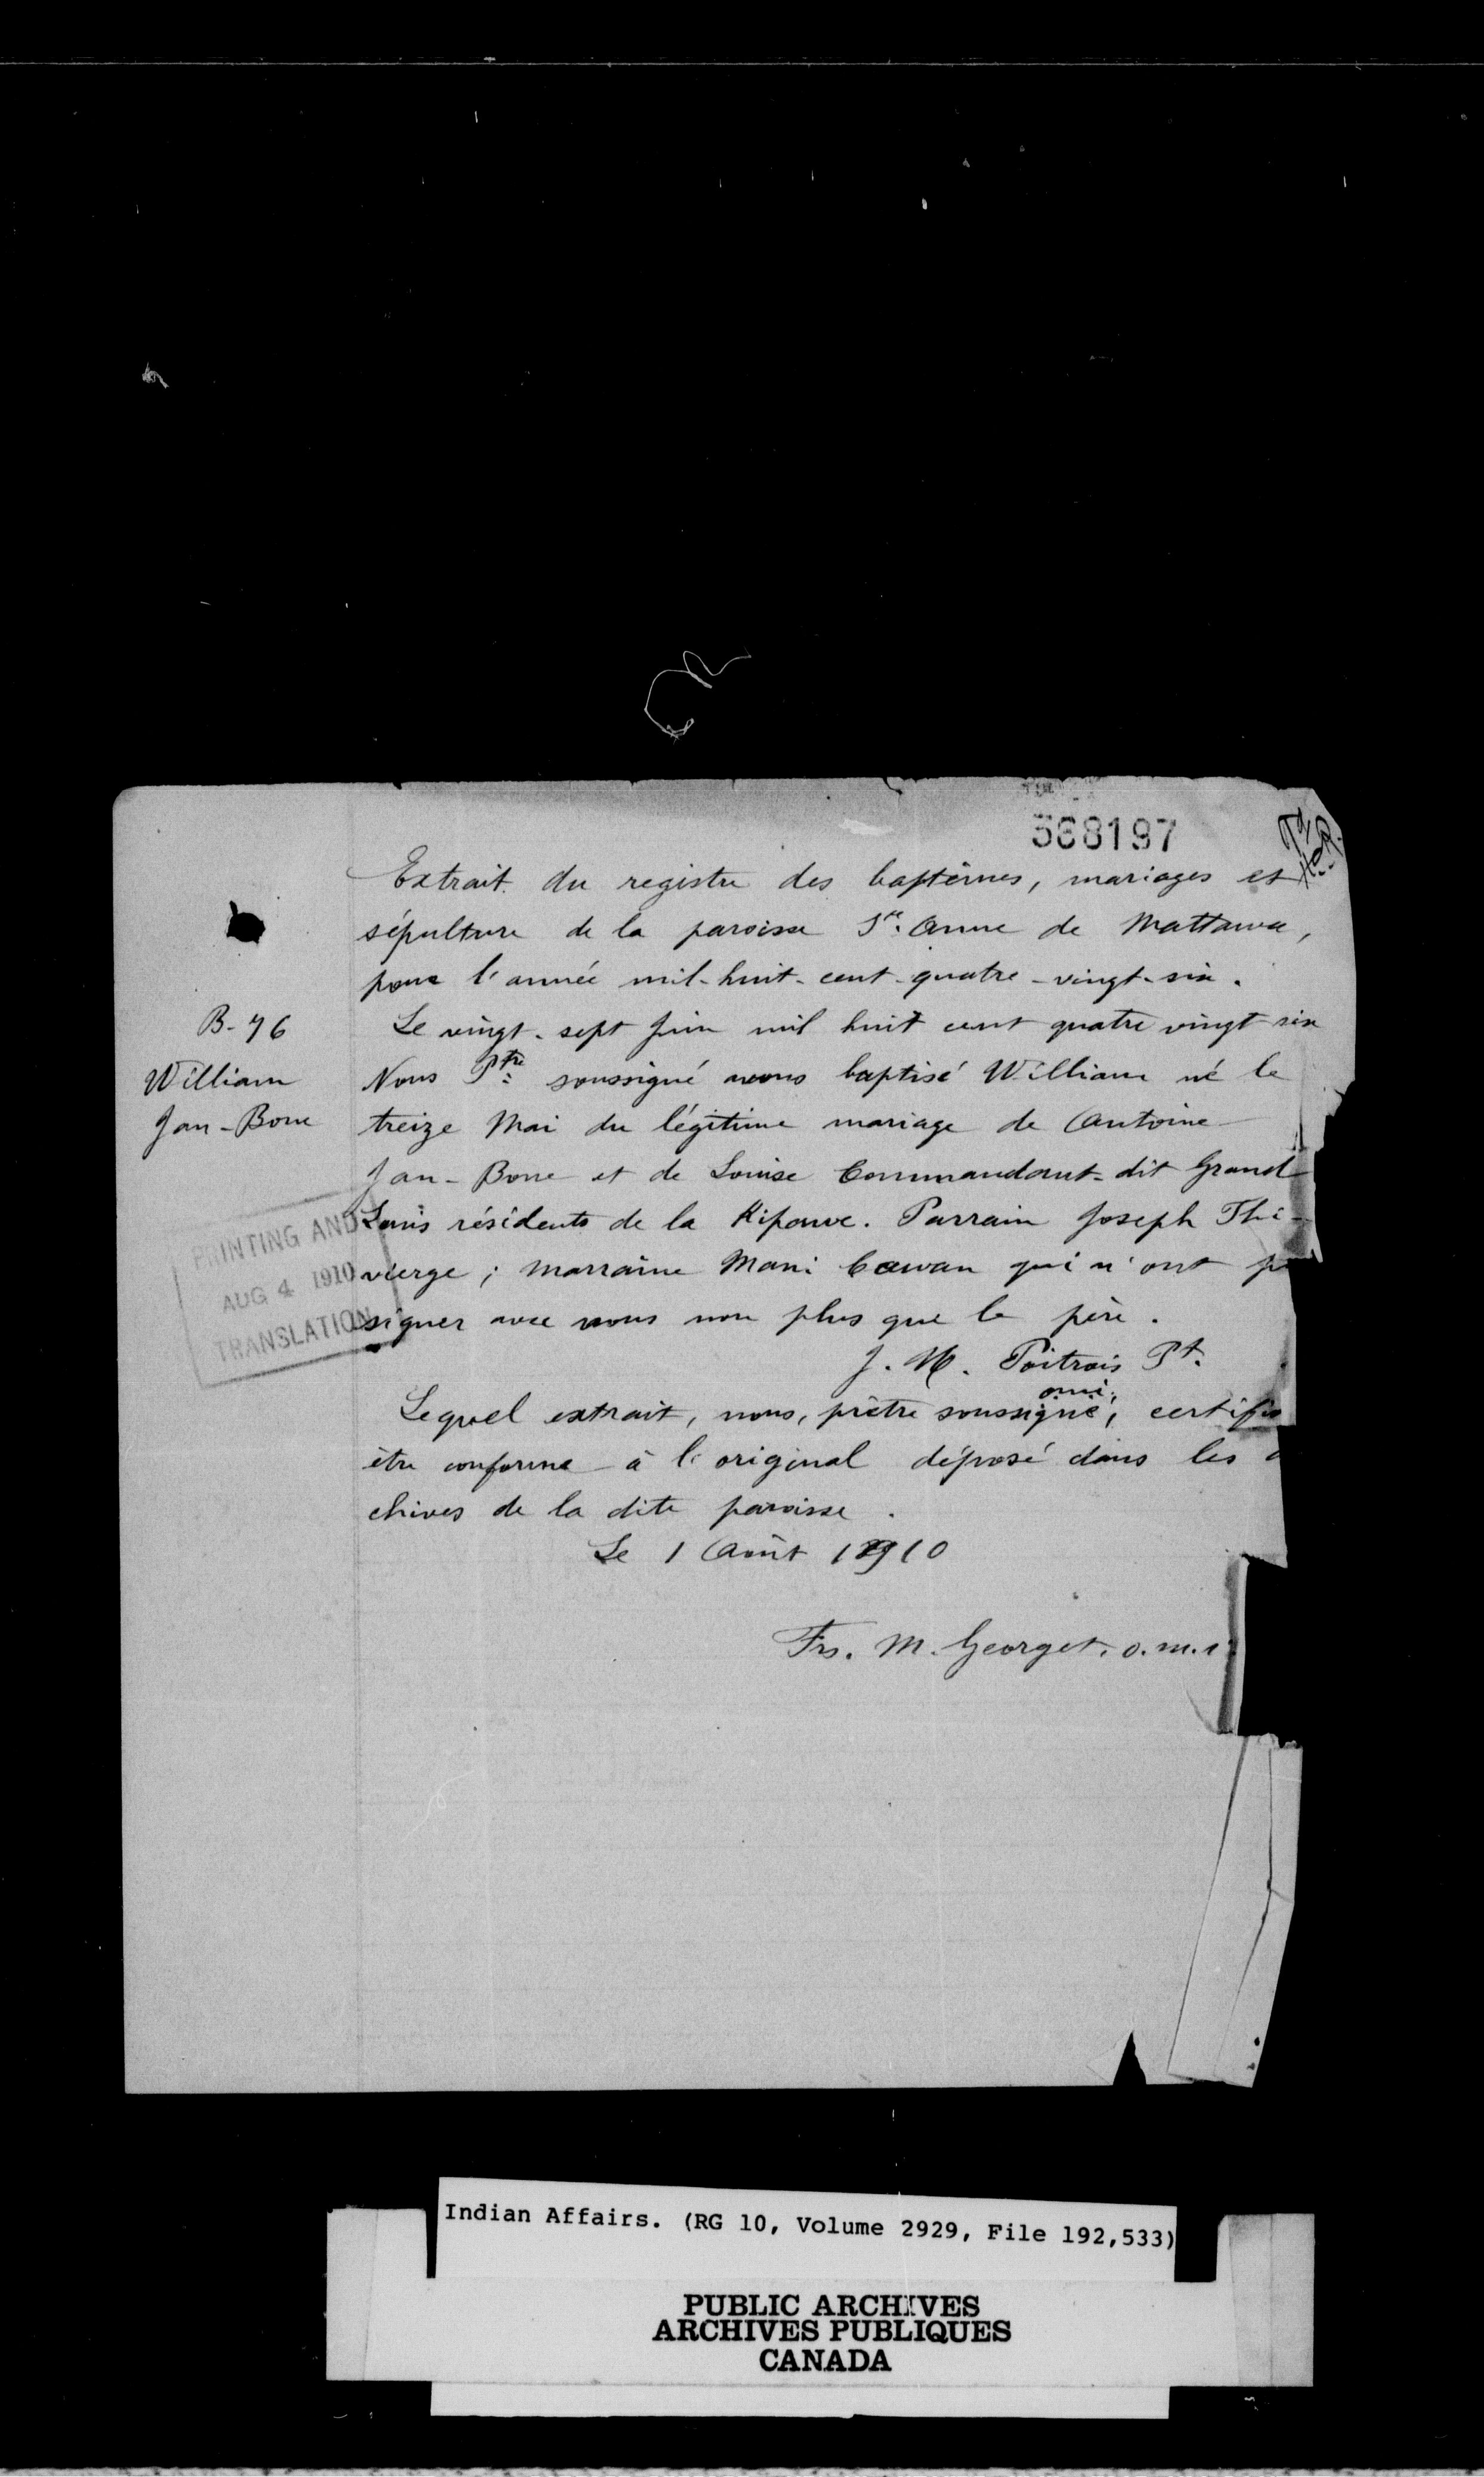 368197
Extrait du registre des baptêmes, mariages et
sépulture de la paroisse Ste. Anne de Mattawa,
pour l'année mil-huit-cent-quatre-vingt-six.
B-76
William
Jan-Bone
Le vingt-sept Juin mil huit cent quatre vingt six
Nous Ptre soussigné avons baptisé William né le
treize Mai du légitime mariage de Antoine
Jan-Bone et de Louise Commandant-dit Grand
Louis résidents de la Kipawe. Parrain Joseph Thi-
vierge; marraine Mani Cawan qui n'ont
signer avec nous non plus que le père.
PRINTING AND
AUG 4 1910
TRANSLATION
J. M. Poitrais Pt.
Lequel extrait, nous, prêtre soussigné, omi, certifie
être conforme à l'original déposé dans les
chives de la dite paroisse.
Le 1 Août 1910
Frs. M. Georget, o.m.i
Indian Affairs. (RG 10, Volume 2929, File 192,533)
PUBLIC ARCHIVES
ARCHIVES PUBLIQUES
CANADA